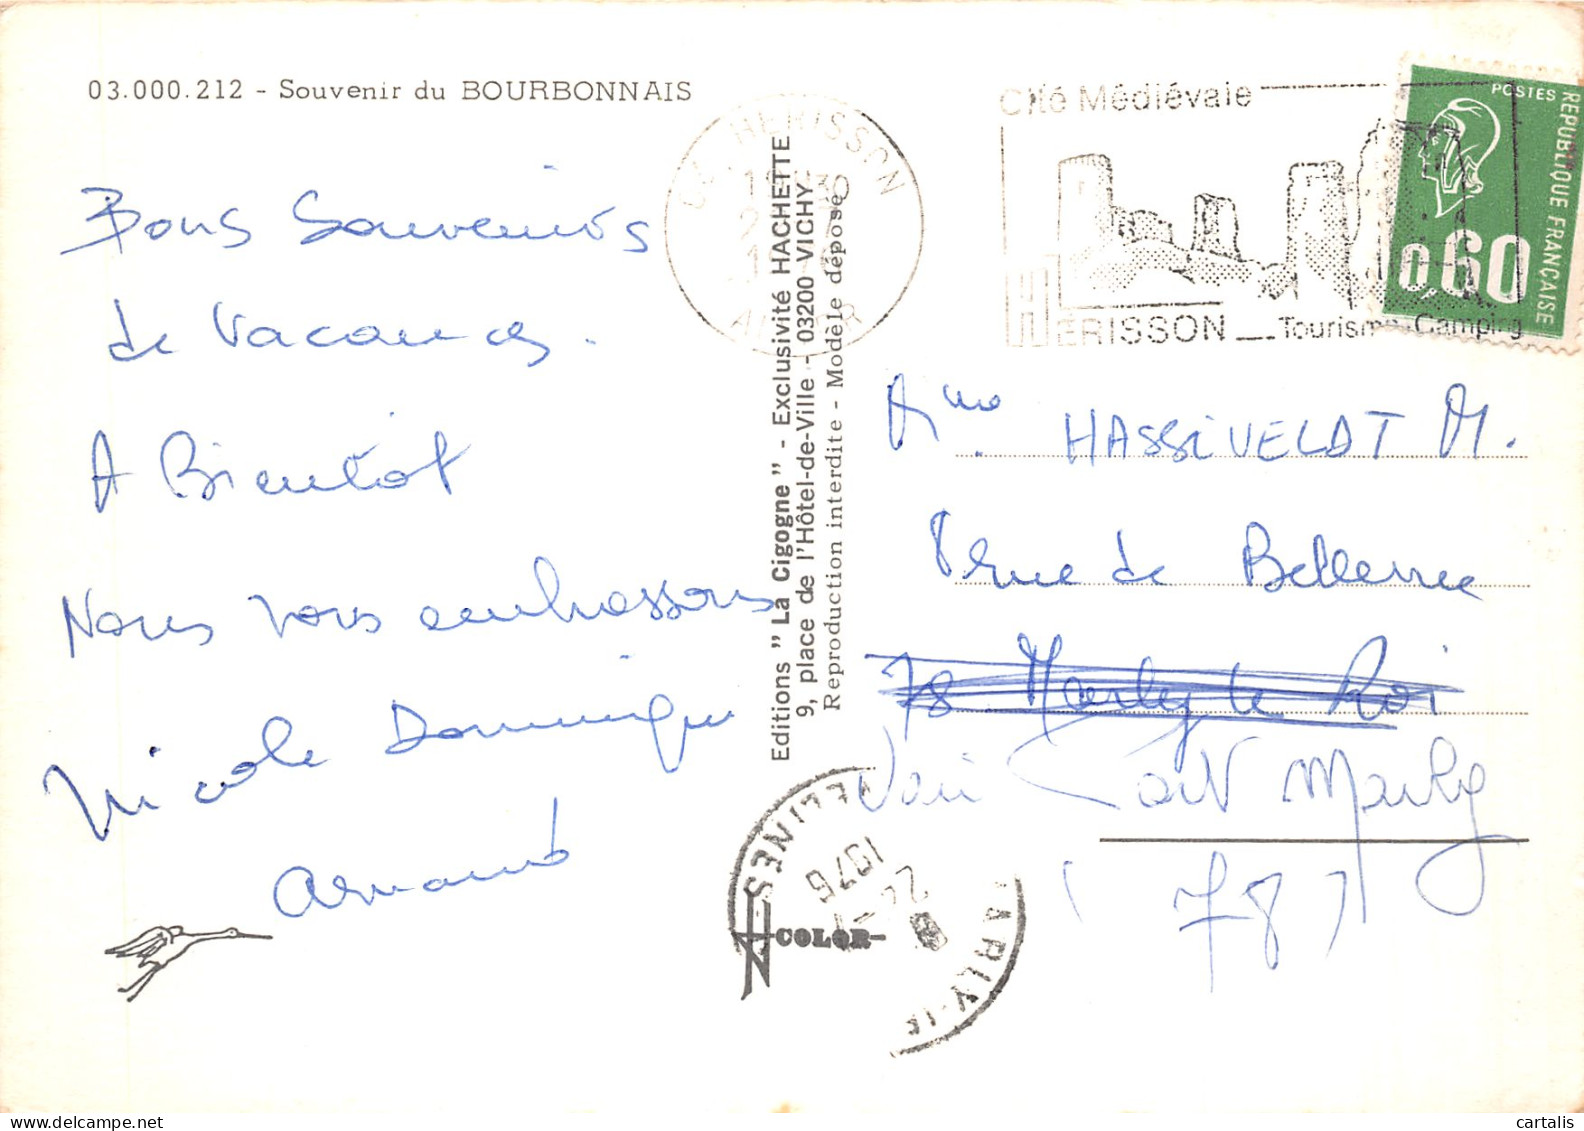 03.000.212 - Souvenir du BOURBONNAIS
Bons Souvenirs
de Vacances.
A Bientôt
Nous vous embrassons
Nicole Dominique
Arnaud
Editions " La Cigogne " - Exclusivité HACHETTE
9, place de l'Hôtel-de-Ville - 03200 VICHY
Reproduction interdite - Modèle déposé
COLOR
HERISSON
ALLIER
Cité Médiévale
HERISSON Tourisme Camping
POSTES
REPUBLIQUE FRANÇAISE
0,60
HASSEVELDT M.
rue de Bellevue
78 Marly le Roi
Voir Port Marly
(78)
YVELINES
1976
MARLY-LE
cartalis